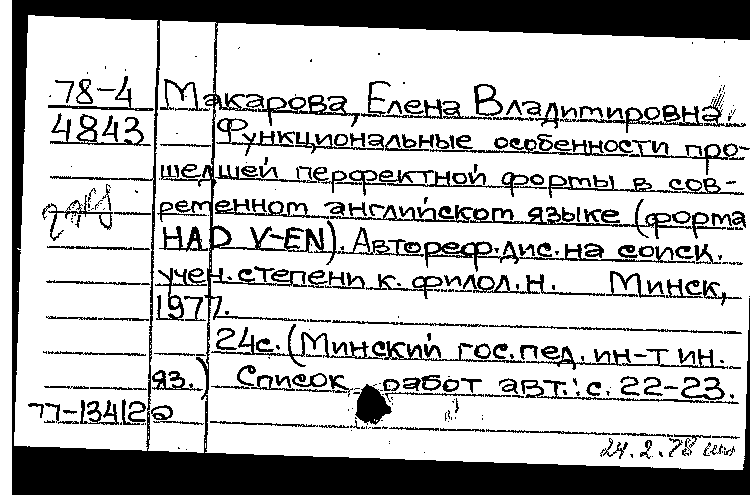 78-4 Макарова, Елена Владимировна.
4843 Функциональные особенности про-
шедшей перфектной формы в сов-
ременном английском языке (форма
HAD V-EN). Автореф. дис. на соиск.
учен. степени к. филол. н. Минск,
1977.
24с. (Минский гос. пед. ин-т ин.
яз.) Список работ авт.: с. 22-23.
77-13412о
24.2.78